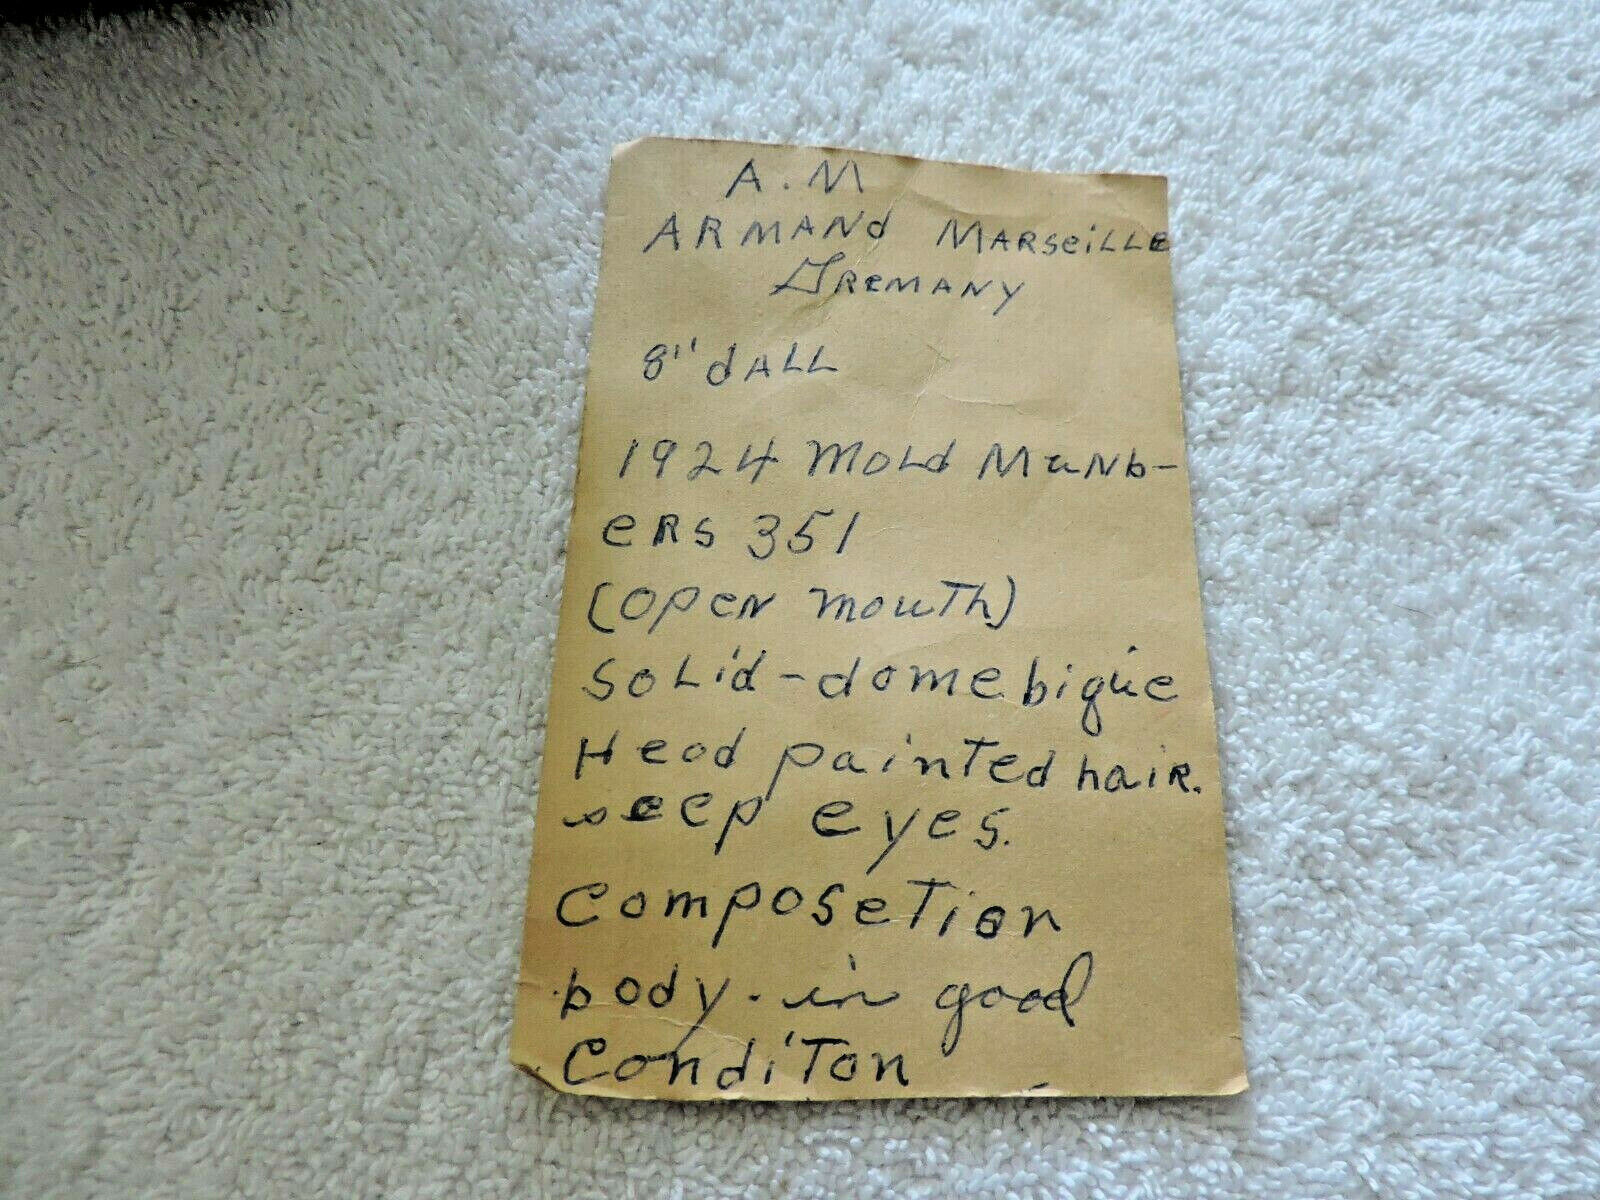 A.M
ARMANd MARSeiLLe
GREMANY
8" dALL
1924 MOLd MuNb-
eRS 351
(OPeN mouTh)
SoLid-dome bigue
Head painTed haiR.
seep eyes.
ComposeTion
body. in good
CondiTon